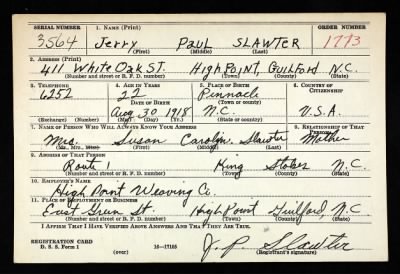 SERIAL NUMBER 1. NAME (Print) ORDER NUMBER
3564 Jerry PAUL SLAWTER 1773
(First) (Middle) (Last)
2. ADDRESS (Print)
411 White Oak ST. High Point, Guilford N.C.
(Number and street or R. F. D. number) (Town) (County) (State)
3. TELEPHONE 4. AGE IN YEARS 5. PLACE OF BIRTH 6. COUNTRY OF CITIZENSHIP
6252 22 Pinnacle
DATE OF BIRTH (Town or county)
Aug 30 1918 N.C. U.S.A.
(Exchange) (Number) (Mo.) (Day) (Yr.) (State or country)
7. NAME OF PERSON WHO WILL ALWAYS KNOW YOUR ADDRESS 8. RELATIONSHIP OF THAT PERSON
Mrs. Susan Carolyn Slawter Mother
(Mr., Mrs., Miss) (First) (Middle) (Last)
9. ADDRESS OF THAT PERSON
Route 1 King Stokes N.C.
(Number and street or R. F. D. number) (Town) (County) (State)
10. EMPLOYER'S NAME
High Point Weaving Co.
11. PLACE OF EMPLOYMENT OR BUSINESS
East Green St High Point Guilford, N.C.
(Number and street or R. F. D. number) (Town) (County) (State)
I AFFIRM THAT I HAVE VERIFIED ABOVE ANSWERS AND THAT THEY ARE TRUE.
REGISTRATION CARD
D. S. S. Form 1 (over) 16—17105 J. P. Slawter
(Registrant's signature)